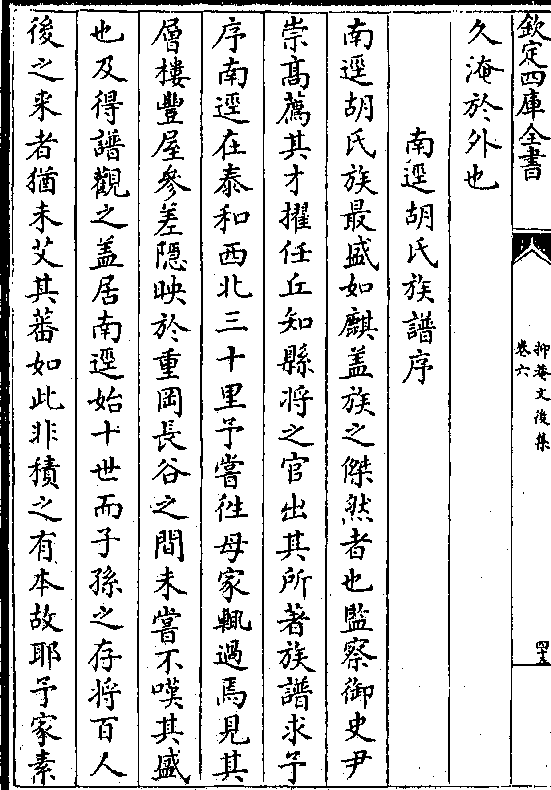 欽定四庫全書
抑菴文後集
卷六
四十五
久淹於外也
南逕胡氏族譜序
南逕胡氏族最盛如麒盖族之傑然者也監察御史尹
崇髙薦其才擢任丘知縣將之官出其所著族譜求予
序南逕在泰和西北三十里予嘗徃母家輒過焉見其
層樓豐屋參差隱映於重岡長谷之間未嘗不嘆其盛
也及得譜觀之盖居南逕始十世而子孫之存將百人
後之来者猶未艾其蕃如此非積之有本故耶予家素